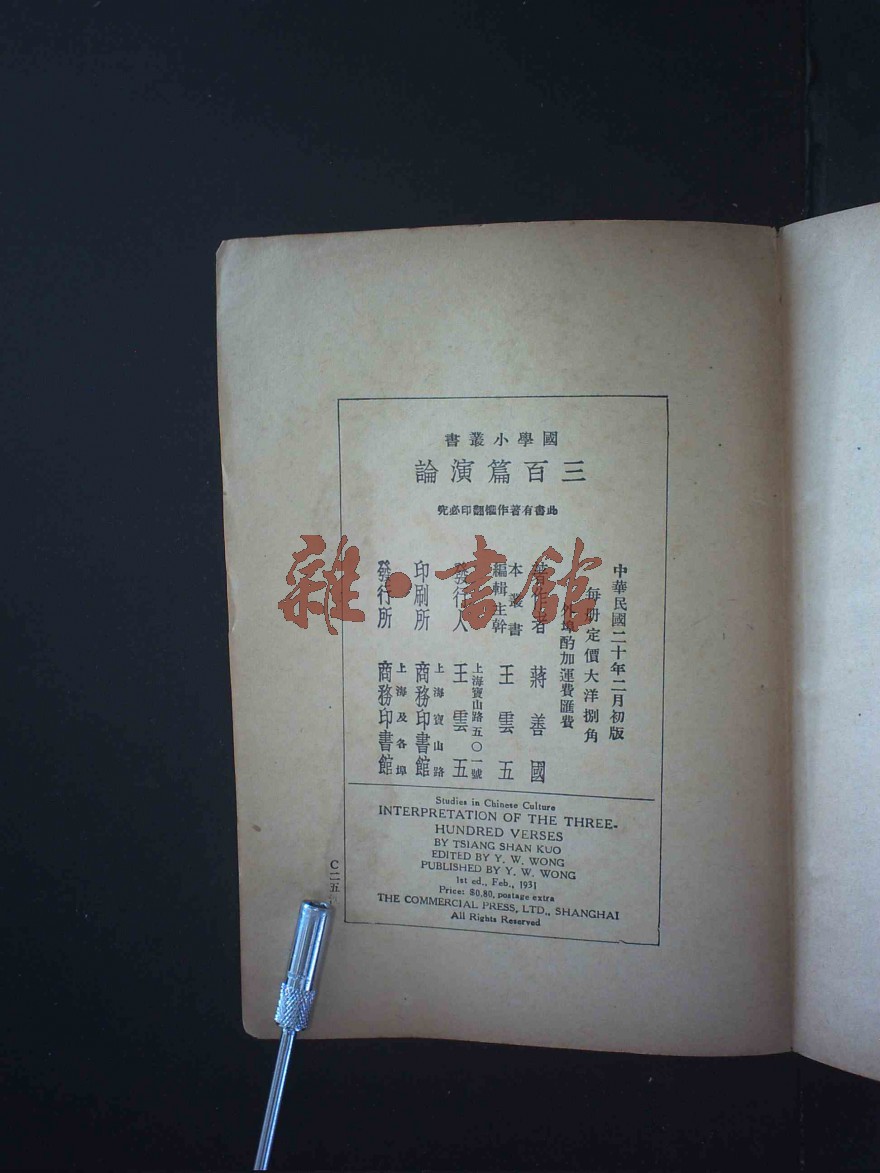 國學小叢書
三百篇演論
此書有著作權翻印必究
中華民國二十年二月初版
每册定價大洋捌角
外埠酌加運費匯費
著作者 蔣善國
本叢書編輯主幹 王雲五
發行人 王雲五
上海寶山路五〇一號
印刷所 商務印書館
上海寶山路
發行所 商務印書館
上海及各埠
Studies in Chinese Culture
INTERPRETATION OF THE THREE-
HUNDRED VERSES
BY TSIANG SHAN KUO
EDITED BY Y. W. WONG
PUBLISHED BY Y. W. WONG
1st ed., Feb., 1931
Price: $0.80, postage extra
THE COMMERCIAL PRESS, LTD., SHANGHAI
All Rights Reserved
C二五
雜·書館